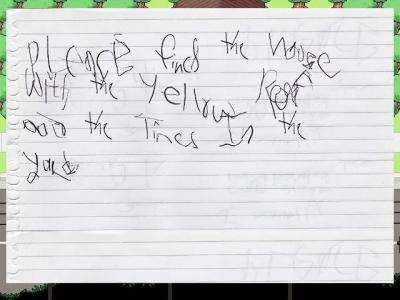 Please find the House
with the Yellow Roof
and the Tires In the
yard